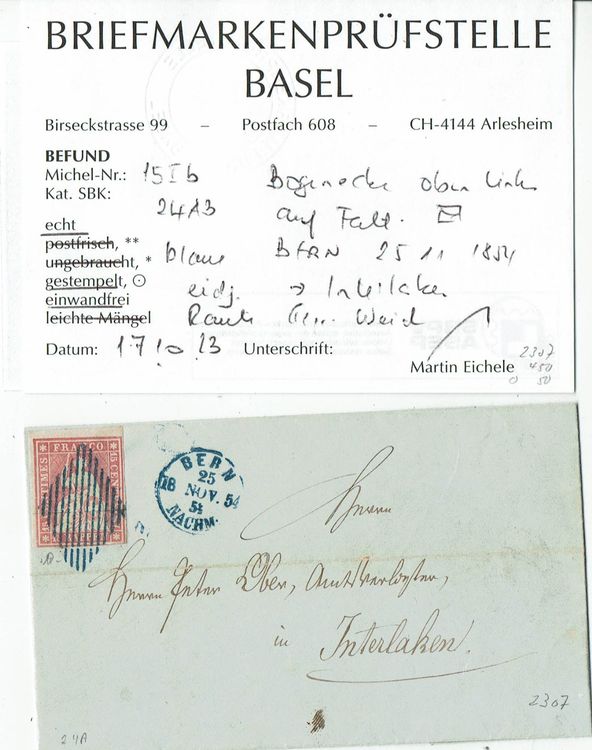 BRIEFMARKENPRÜFSTELLE
BASEL
Birseckstrasse 99 – Postfach 608 – CH-4144 Arlesheim
BEFUND
Michel-Nr.: 15IIb Bogenecke oben links
Kat. SBK: 24A3 auf Falt.
echt
postfrisch, ** blaue BERN 25 11 1854
ungebraucht, *
gestempelt, ⊙ eidg. → Interlaken
einwandfrei
leichte Mängel Raute
Datum: 17 10 13 Unterschrift:
Martin Eichele
2307
450
0 50
FRANCO
15 CENT
TIMES
BERN
25
18 NOV. 54
5½
NACHM.
Herrn
Herrn Peter Ober, Amtsverweser,
in Interlaken.
2307
24A